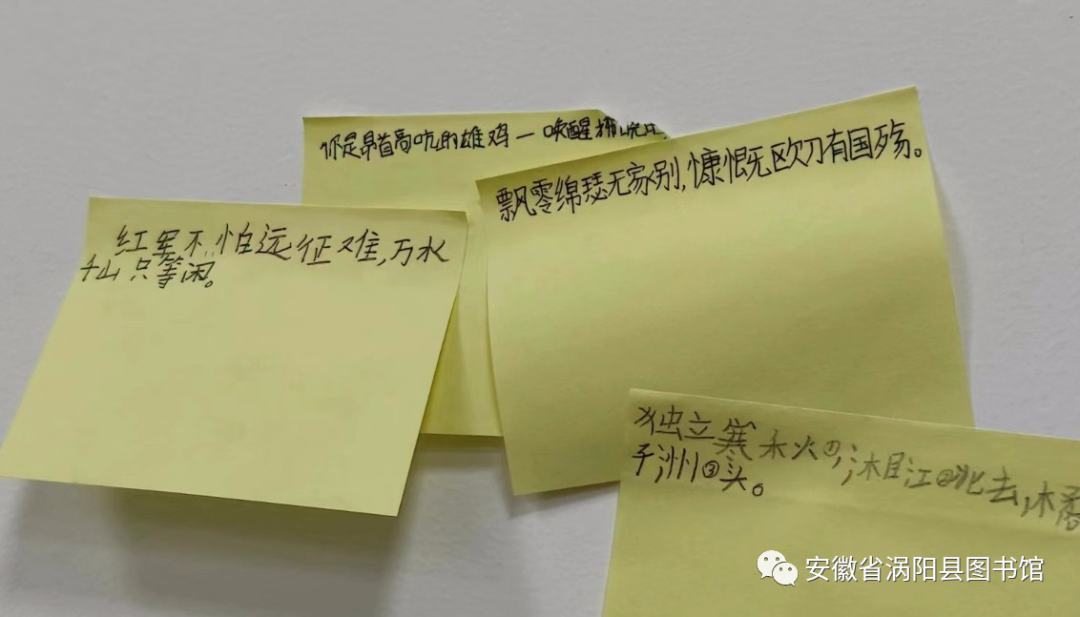 你是昂首高吭的雄鸡一唤醒拂晓
飘零绵瑟无家别,慷慨欧刀有国殇。
红军不怕远征难,万水
千山只等闲。
独立寒禾火①,沐目江②北去,木橘
子洲③头。
安徽省涡阳县图书馆